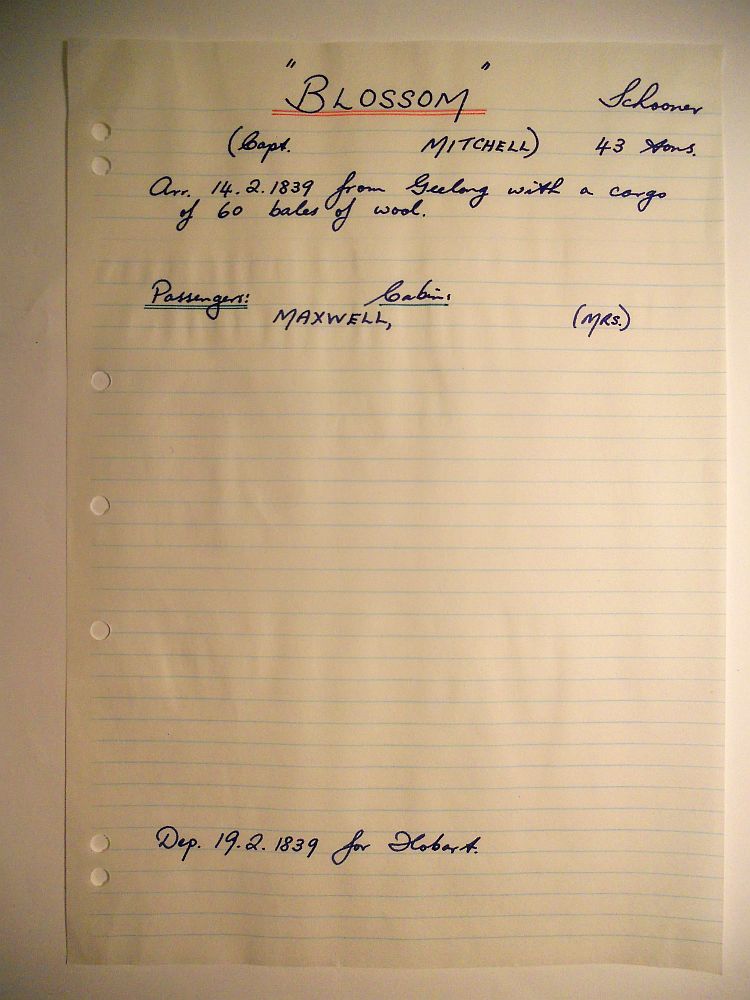 "BLOSSOM" Schooner
(Capt. MITCHELL) 43 tons.
Arr. 14.2.1839 from Geelong with a cargo
of 60 bales of wool.
Passengers: Cabin:
MAXWELL, (MRS.)
Dep. 19.2.1839 for Hobart.